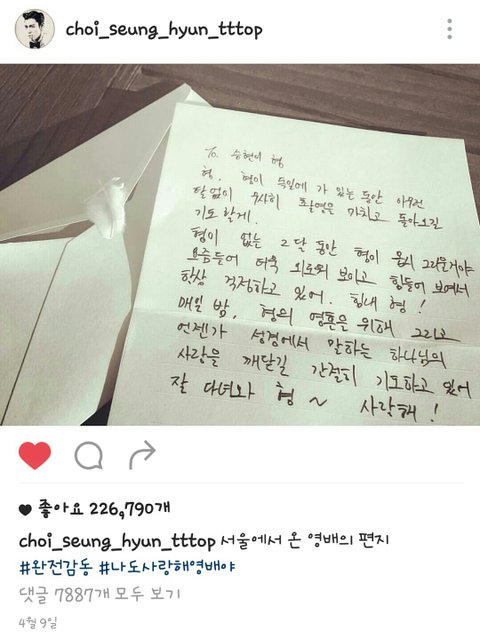 choi_seung_hyun_tttop
To. 승현이 형
형, 형이 독일에 가 있는 동안 아무런
탈 없이 무사히 촬영을 마치고 돌아오길
기도할게.
형이 없는 2달 동안 형이 몹시 그리울거야
요즘들어 더욱 외로워 보이고 힘들어 보여서
항상 걱정하고 있어. 힘내 형!
매일 밤, 형의 영혼을 위해 그리고
언젠가 성경에서 말하는 하나님의
사랑을 깨닫길 간절히 기도하고 있어
잘 다녀와 형 ~ 사랑해!
좋아요 226,790개
choi_seung_hyun_tttop 서울에서 온 영배의 편지
#완전감동 #나도사랑해영배야
댓글 7887개 모두 보기
4월 9일